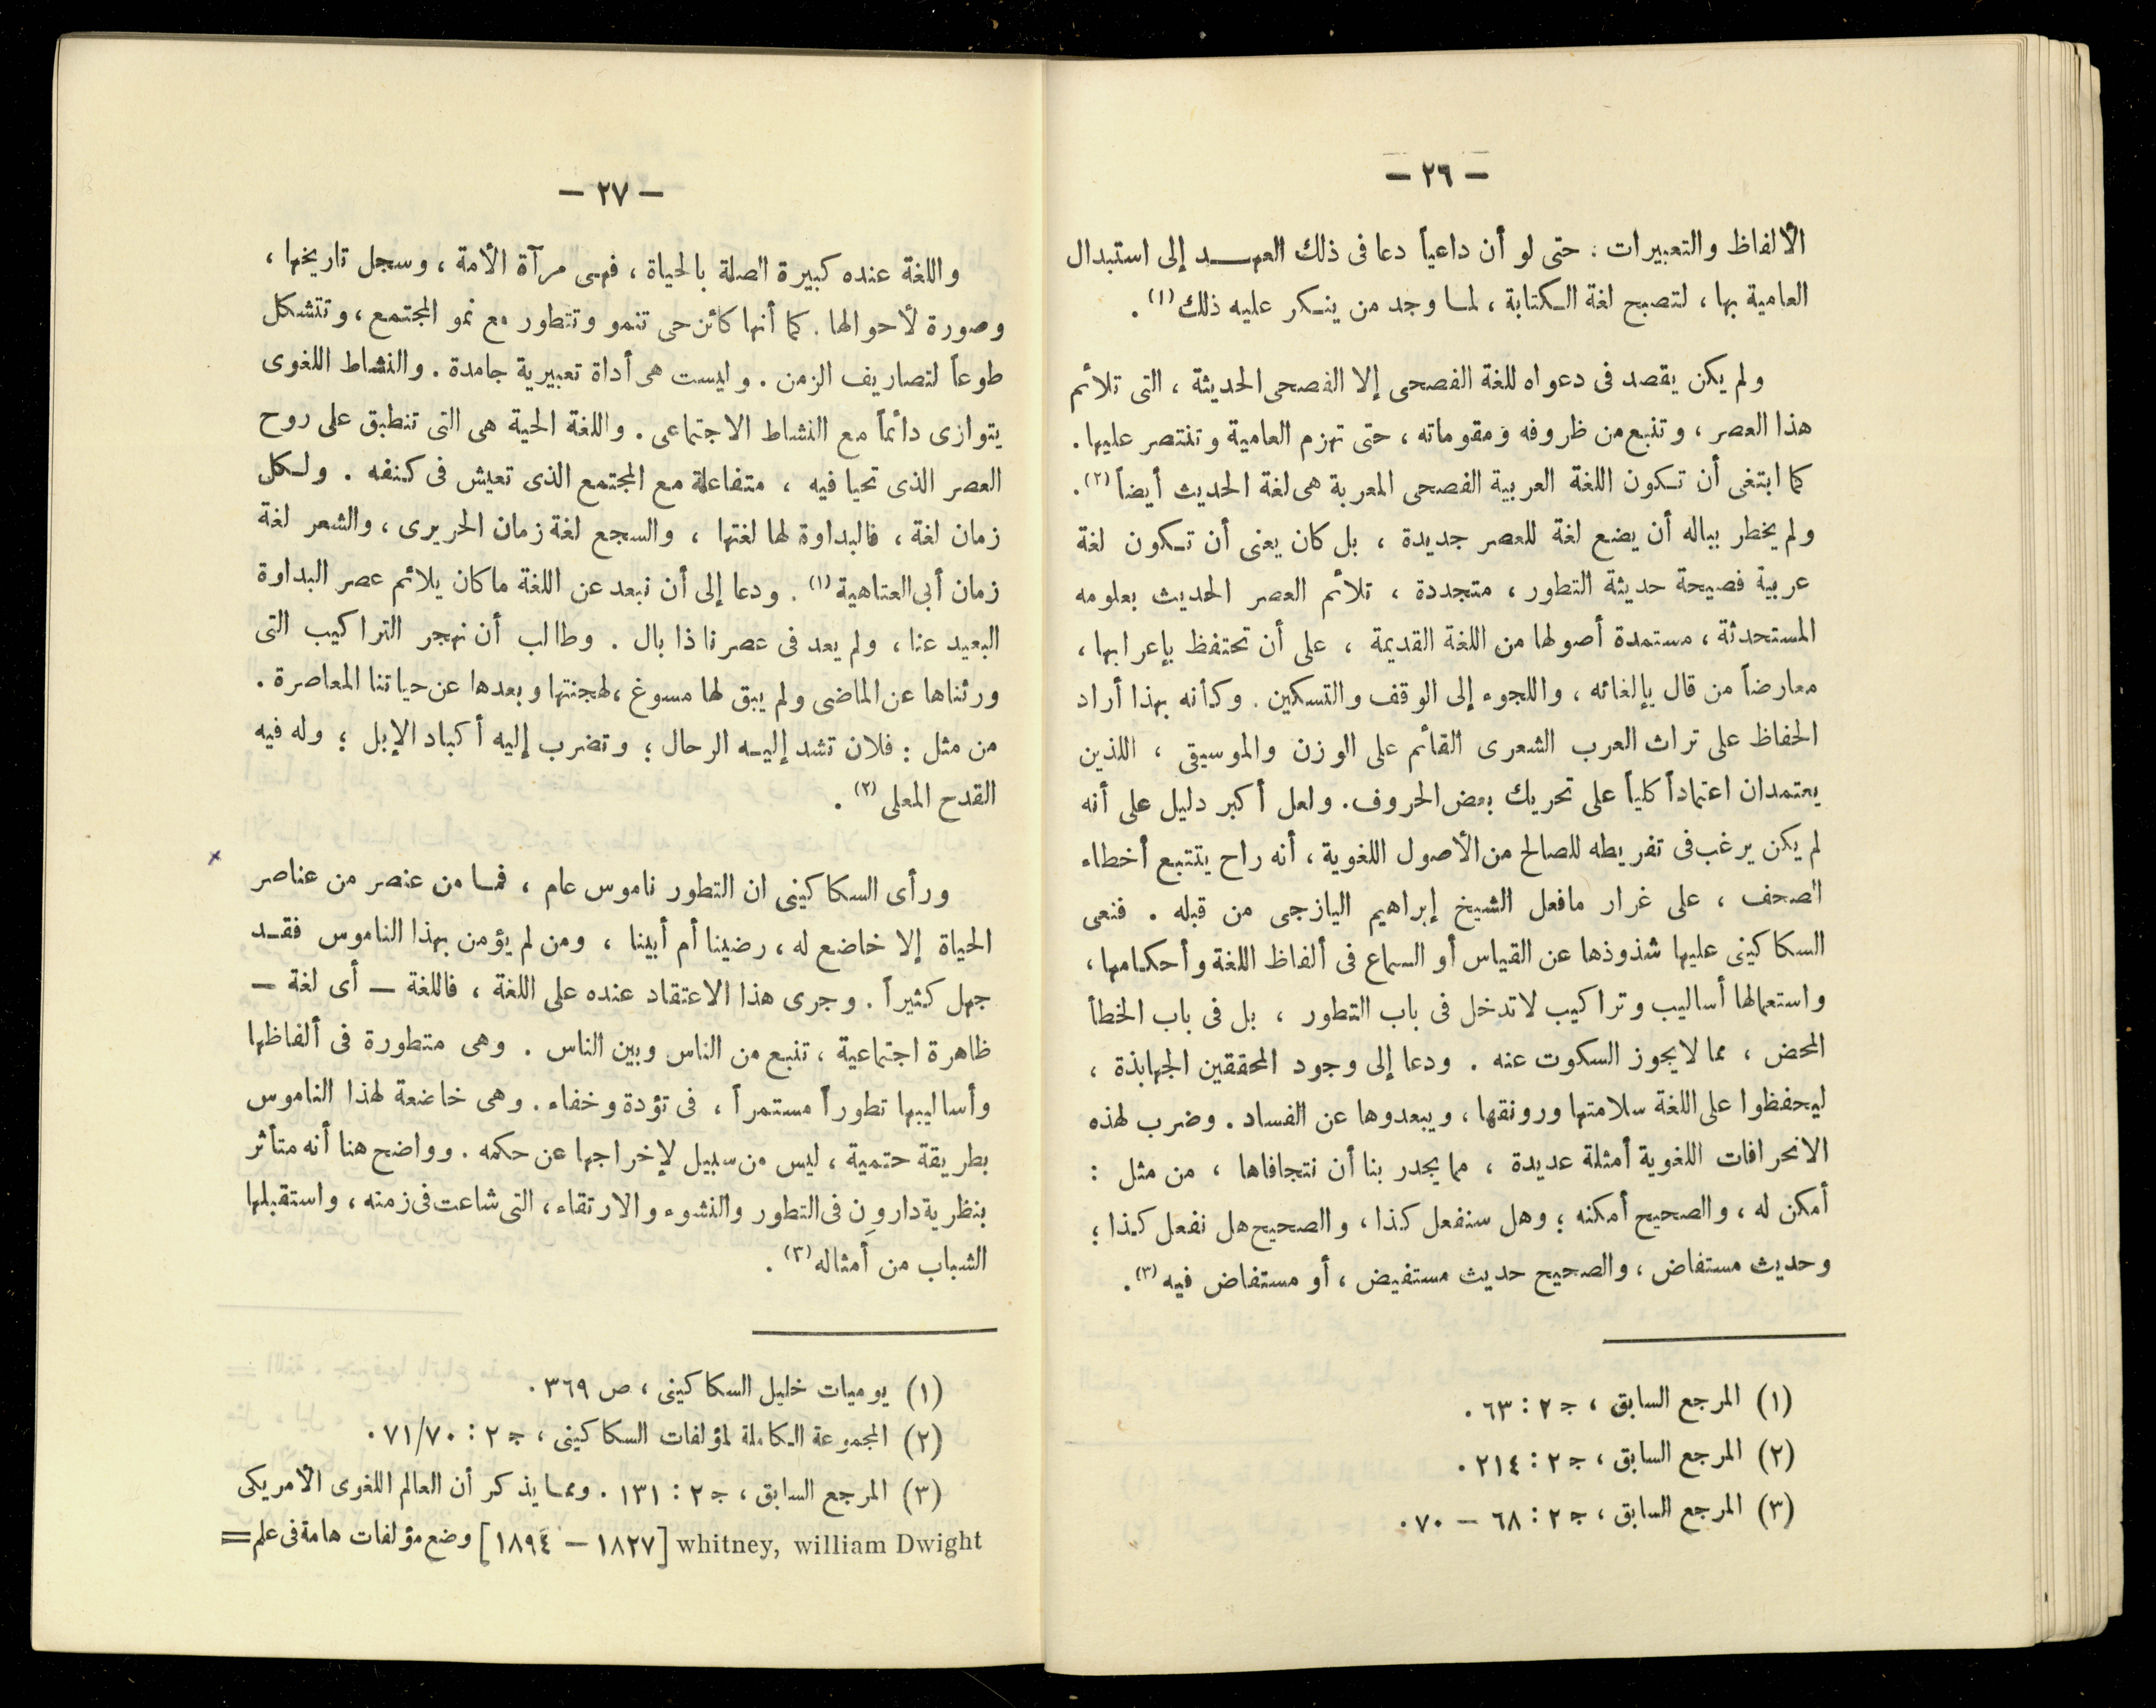 — ٢٦ —
الألفاظ والتعبيرات : حتى لو أن داعياً دعا فى ذلك العهـــد إلى استبدال
العامية بها ، لتصبح لغة الكتابة ، لما وجد من ينكر عليه ذلك (١) .
ولم يكن يقصد فى دعواه للغة الفصحى إلا الفصحى الحديثة ، التى تلائم
هذا العصر ، وتنبع من ظروفه ومقوماته ، حتى تهزم العامية وتنتصر عليها .
كما ابتغى أن تكون اللغة العربية الفصحى المعربة هى لغة الحديث أيضاً (٢) .
ولم يخطر بباله أن يضع لغة للعصر جديدة ، بل كان يعنى أن تكون لغة
عربية فصيحة حديثة التطور ، متجددة ، تلائم العصر الحديث بعلومه
المستحدثة ، مستمدة أصولها من اللغة القديمة ، على أن تحتفظ بإعرابها ،
معارضاً من قال بإلغائه ، واللجوء إلى الوقف والتسكين . وكأنه بهذا أراد
الحفاظ على تراث العرب الشعرى القائم على الوزن والموسيقى ، اللذين
يعتمدان اعتماداً كلياً على تحريك بعض الحروف . ولعل أكبر دليل على أنه
لم يكن يرغب فى تفريطه للصالح من الأصول اللغوية ، أنه راح يتتبع أخطاء
الصحف ، على غرار مافعل الشيخ إبراهيم اليازجى من قبله . فنعى
السكاكينى عليها شذوذها عن القياس أو السماع فى ألفاظ اللغة وأحكامها ،
واستعمالها أساليب وتراكيب لاتدخل فى باب التطور ، بل فى باب الخطأ
المحض ، مما لايجوز السكوت عنه . ودعا إلى وجود المحققين الجهابذة ،
ليحفظوا على اللغة سلامتها ورونقها ، ويبعدوها عن الفساد . وضرب لهذه
الانحرافات اللغوية أمثلة عديدة ، مما يجدر بنا أن نتجافاها ، من مثل :
أمكن له ، والصحيح أمكنه ؛ وهل سنفعل كذا ، والصحيح هل نفعل كذا ؛
وحديث مستفاض ، والصحيح حديث مستفيض ، أو مستفاض فيه (٣) .
(١) المرجع السابق ، جـ ٢ : ٦٣ .
(٢) المرجع السابق ، جـ ٢ : ٢١٤ .
(٣) المرجع السابق ، جـ ٢ : ٦٨ — ٧٠ .
— ٢٧ —
واللغة عنده كبيرة الصلة بالحياة ، فهى مرآة الأمة ، وسجل تاريخها ،
وصورة لأحوالها . كما أنها كائن حى تنمو وتتطور مع نمو المجتمع ، وتتشكل
طوعاً لتصاريف الزمن . وليست هى أداة تعبيرية جامدة . والنشاط اللغوى
يتوازى دائماً مع النشاط الاجتماعى . واللغة الحية هى التى تنطبق على روح
العصر الذى تحيا فيه ، متفاعلة مع المجتمع الذى تعيش فى كنفه . ولكل
زمان لغة ، فالبداوة لها لغتها ، والسجع لغة زمان الحريرى ، والشعر لغة
زمان أبى العتاهية (١) . ودعا إلى أن نبعد عن اللغة ماكان يلائم عصر البداوة
البعيد عنا ، ولم يعد فى عصرنا ذا بال . وطالب أن نهجر التراكيب التى
ورثناها عن الماضى ولم يبق لها مسوغ ، لهجنتها وبعدها عن حياتنا المعاصرة .
من مثل : فلان تشد إليـه الرحال ؛ وتضرب إليه أكباد الإبل ؛ وله فيه
القدح المعلى (٢) .
ورأى السكاكينى ان التطور ناموس عام ، فمـا من عنصر من عناصر
الحياة إلا خاضع له ، رضينا أم أبينا ، ومن لم يؤمن بهذا الناموس فقـد
جهل كثيراً . وجرى هذا الاعتقاد عنده على اللغة ، فاللغة — أى لغة —
ظاهرة اجتماعية ، تنبع من الناس وبين الناس . وهى متطورة فى ألفاظها
وأساليبها تطوراً مستمراً ، فى تؤدة وخفاء . وهى خاضعة لهذا الناموس
بطريقة حتمية ، ليس من سبيل لإخراجها عن حكمه . وواضح هنا أنه متأثر
بنظرية داروِن فى التطور والنشوء والارتقاء ، التى شاعت فى زمنه ، واستقبلها
الشباب من أمثاله (٣) .
(١) يوميات خليل السكاكينى ، ص ٣٦٩ .
(٢) المجموعة الكاملة لمؤلفات السكاكينى ، جـ ٢ : ٧١/٧٠ .
(٣) المرجع السابق ، جـ ٢ : ١٣١ . ومما يذكر أن العالم اللغوى الأمريكى
whitney, william Dwight [١٨٢٧ — ١٨٩٤] وضع مؤلفات هامة فى علم =